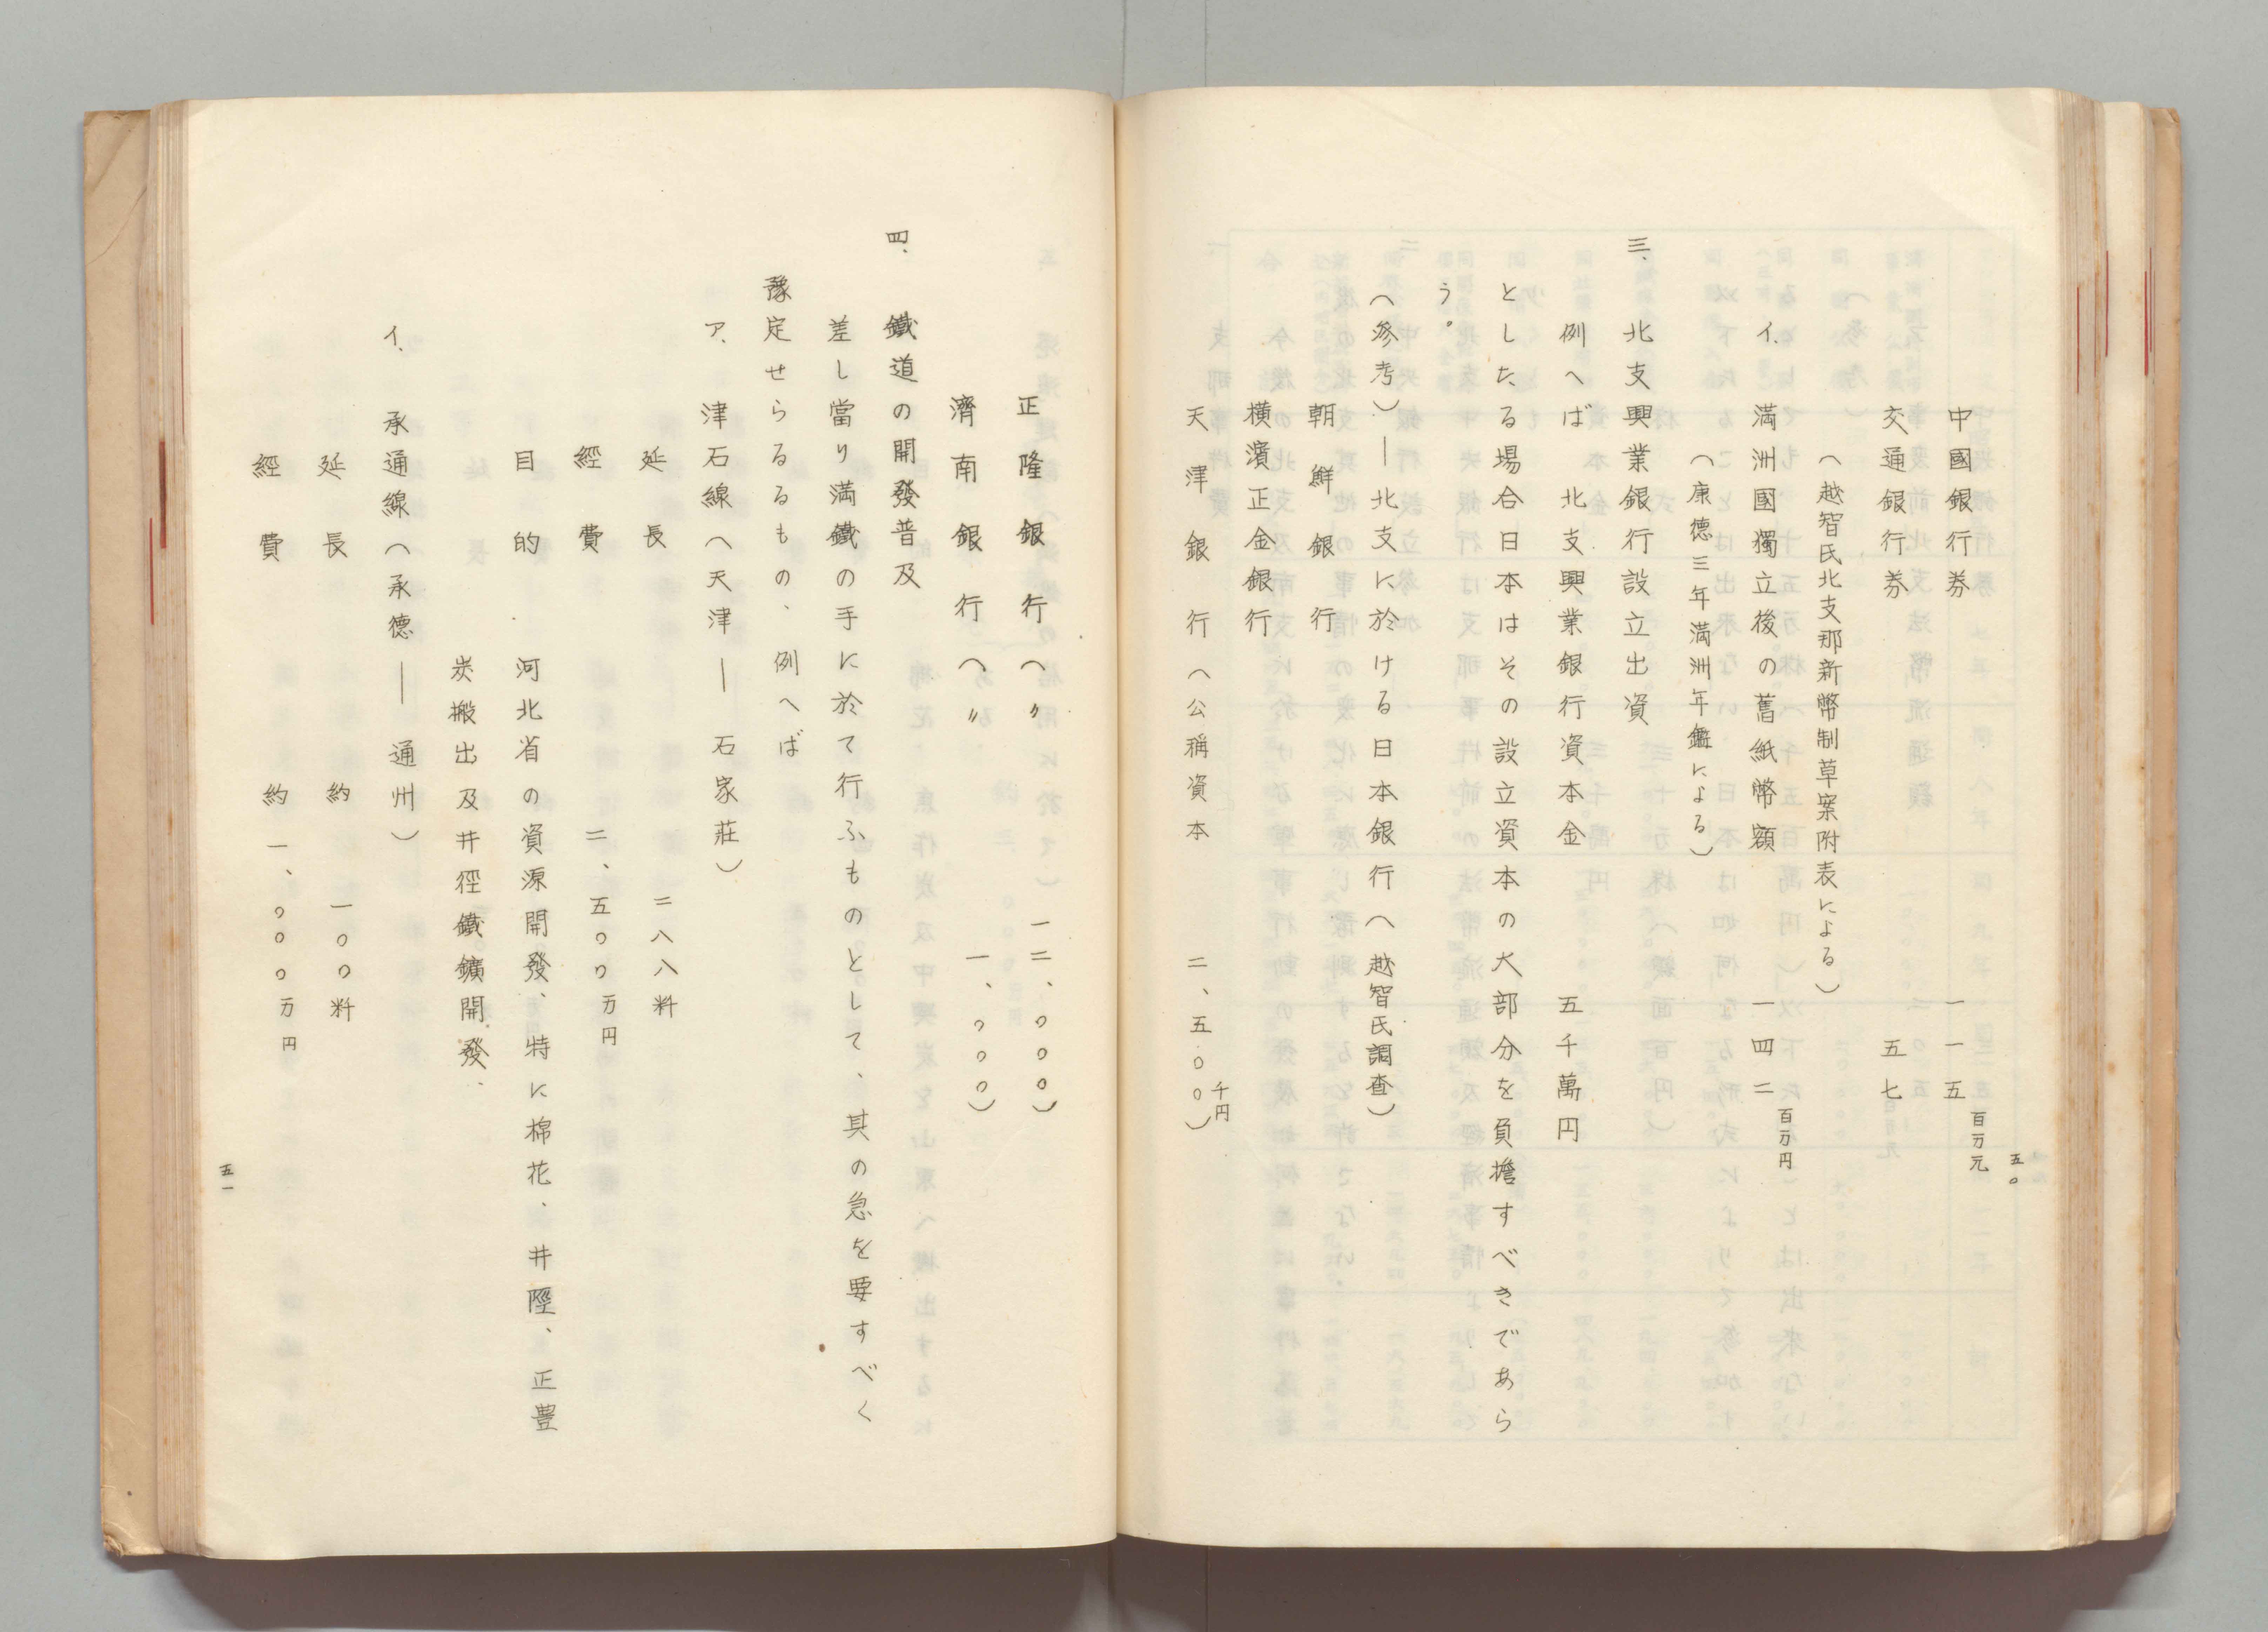 五〇
中國銀行券　一一五百万元
交通銀行券　五七
（越智氏北支那新幣制草案附表による）
イ、満洲國獨立後の舊紙幣額　一四二百万円
（康德三年満洲年鑑による）
三、北支興業銀行設立出資
例へば　北支興業銀行資本金　五千萬円
としたる場合日本はその設立資本の大部分を負擔すべきであら
う。
（参考）―北支に於ける日本銀行（越智氏調査）
朝鮮銀行
橫濱正金銀行
天津銀行（公稱資本　二、五〇〇千円）
正隆銀行（〃　一二、〇〇〇）
濟南銀行（〃　一、〇〇〇）
四、鐵道の開發普及
差し當り満鐵の手に於て行ふものとして、其の急を要すべく
豫定せらるるもの、例へば
ア、津石線（天津―石家莊）
延長　二八八粁
經費　二、五〇〇万円
目的　河北省の資源開發、特に棉花、井陘、正豐
炭搬出及井徑鐵鑛開發、
イ、承通線（承德―通州）
延長　約一〇〇粁
經費　約一、〇〇〇万円
五一